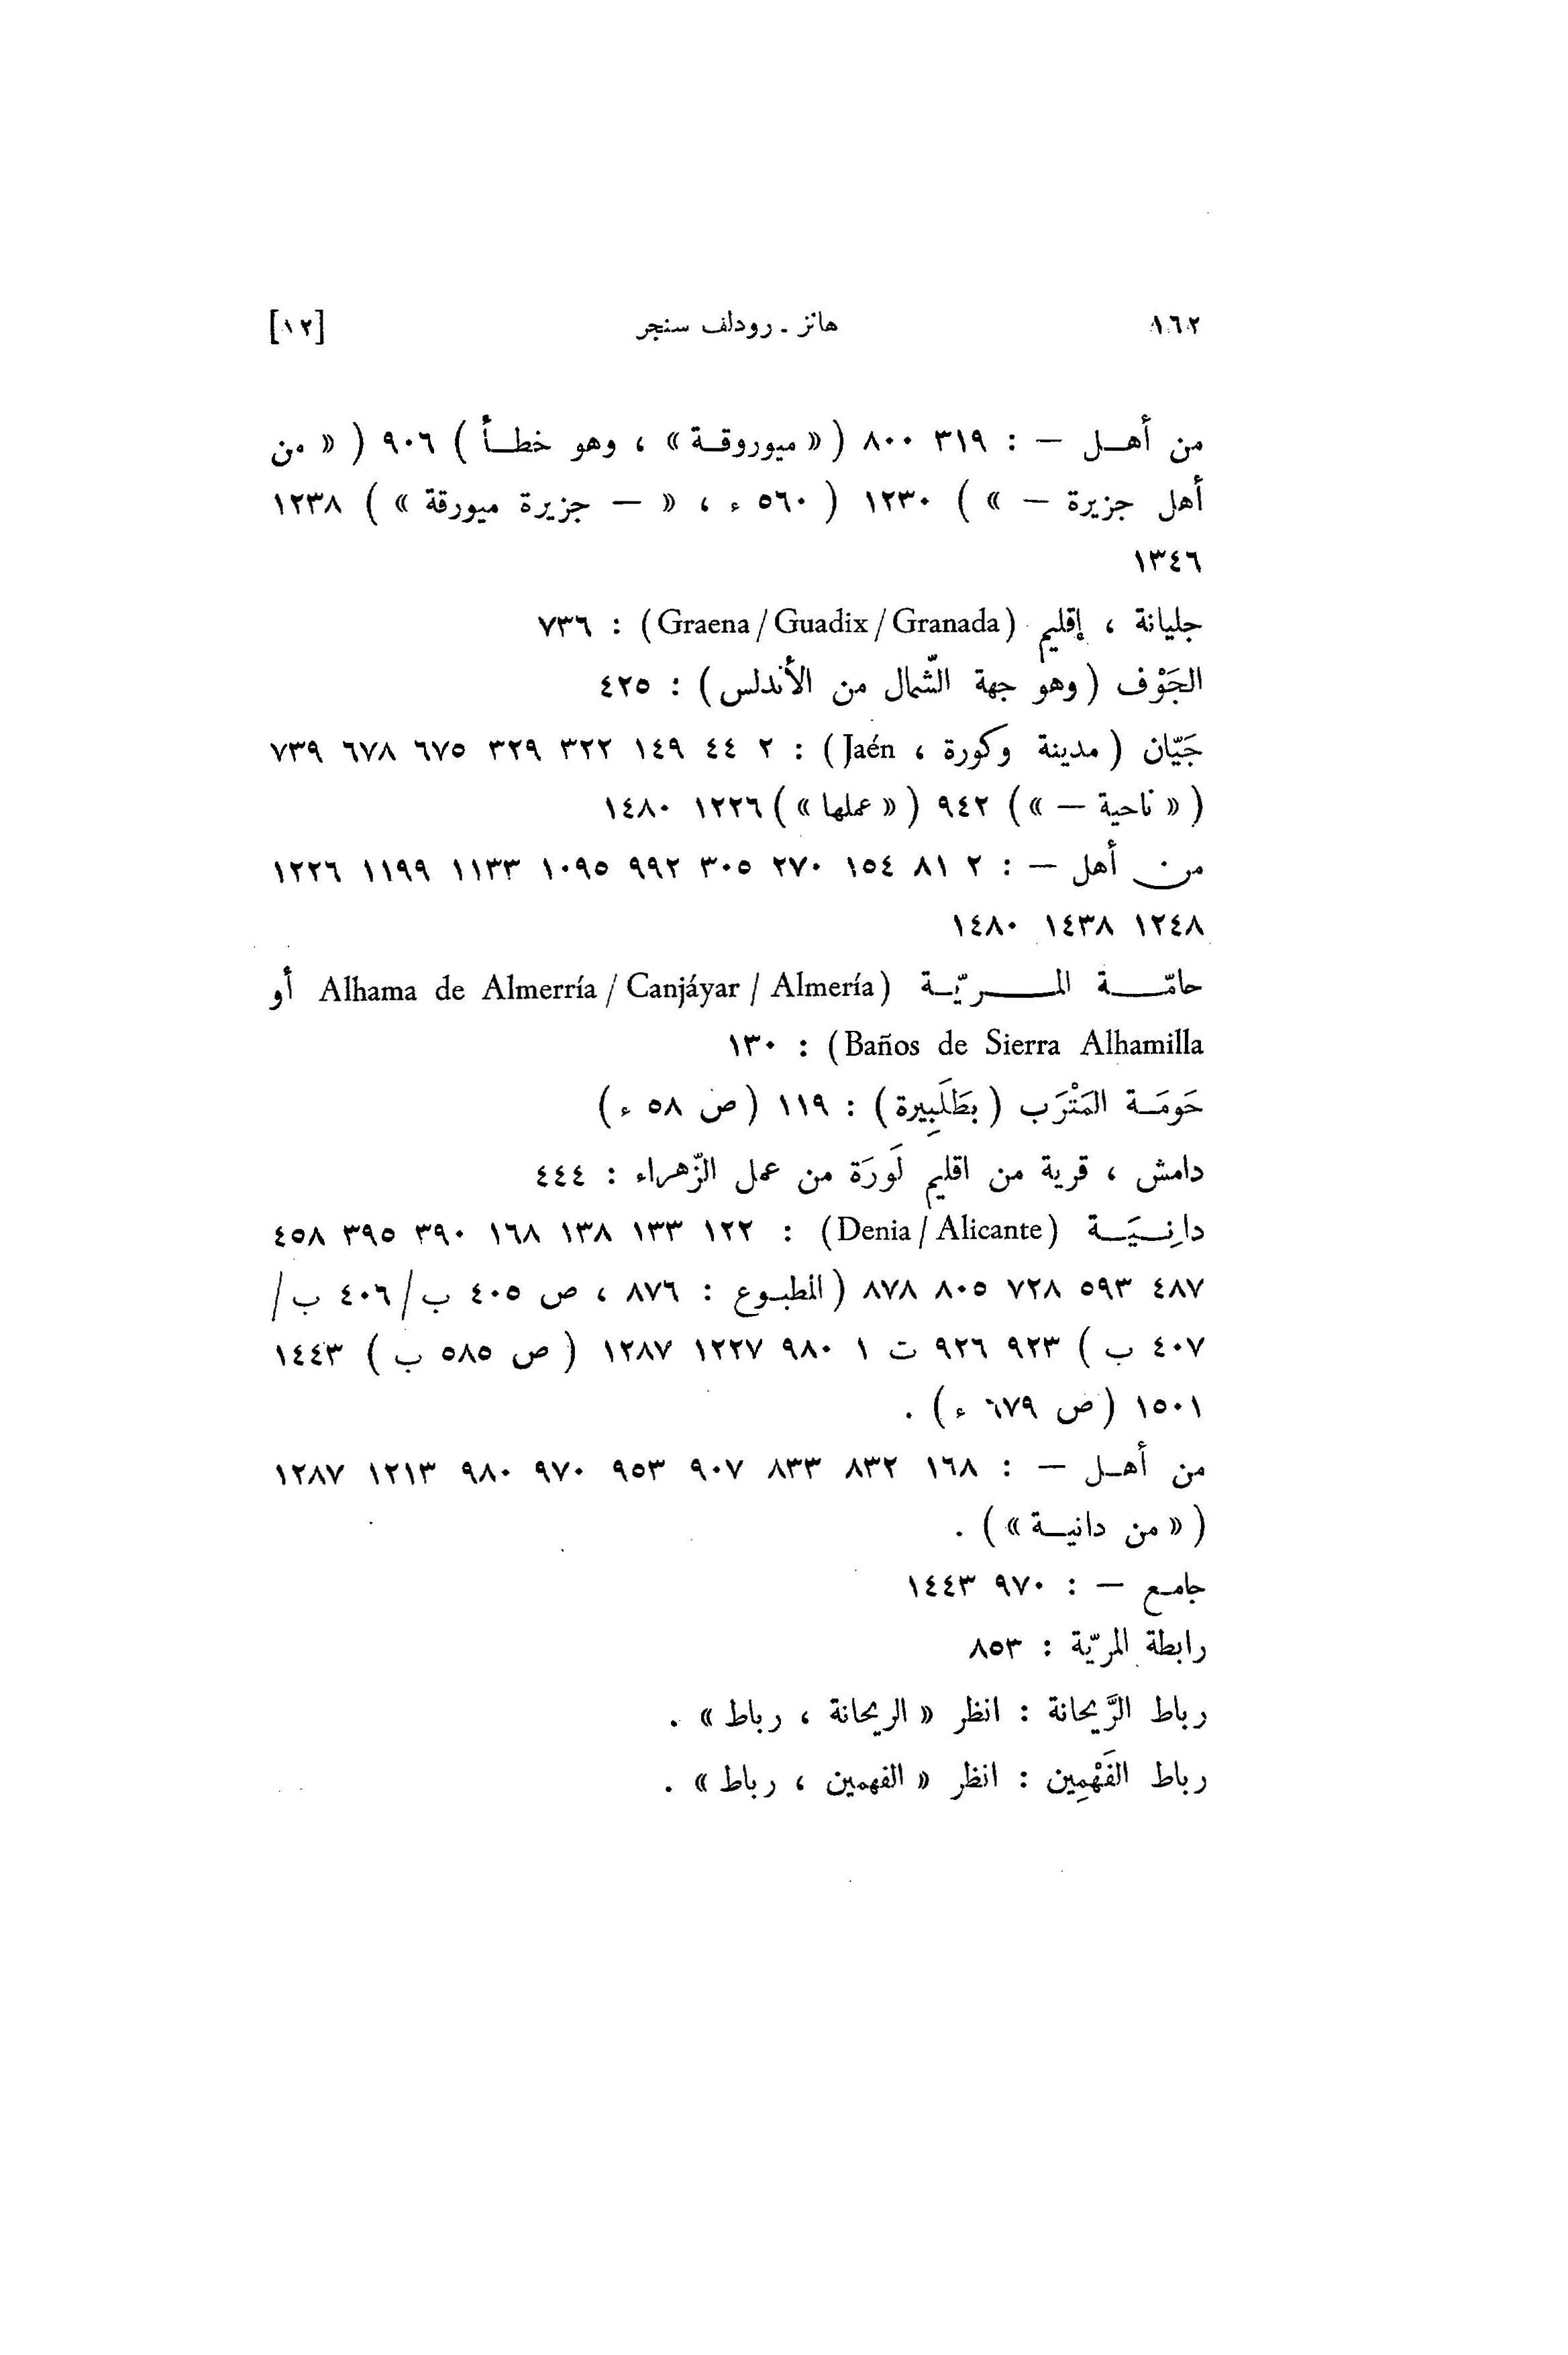 ١٦٢ هانز ـ رودلف سنجر [١٢]
من أهـل — : ٣١٩ ٨٠٠ ( « ميوروقـة » ، وهو خطـأ ) ٩٠٦ ( « من
أهل جزيرة — » ) ١٢٣٠ ( ٥٦٠ ء ، « — جزيرة ميورقة » ) ١٢٣٨
١٣٤٦
جليانة ، إقليم (Graena / Guadix / Granada) : ٧٣٦
الجَوْف ( وهو جهة الشّمال من الأندلس ) : ٤٢٥
جَيّان ( مدينة وكورة ، Jaén ) : ٢ ٤٤ ١٤٩ ٣٢٢ ٣٢٩ ٦٧٥ ٦٧٨ ٧٣٩
( « ناحية — » ) ٩٤٢ ( « عملها » ) ١٢٢٦ ١٤٨٠
من أهل — : ٢ ٨١ ١٥٤ ٢٧٠ ٣٠٥ ٩٩٢ ١٠٩٥ ١١٣٣ ١١٩٩ ١٢٢٦
١٢٤٨ ١٤٣٨ ١٤٨٠
حامّـة المـريّـة (Alhama de Almerría / Canjáyar / Almería أو
Baños de Sierra Alhamilla) : ١٣٠
حَومَـة المَتْرَب ( بطَلَبِيرة ) : ١١٩ ( ص ٥٨ ء )
دامش ، قرية من اقليم لَورَة من عمل الزّهراء : ٤٤٤
دانِـيَـة (Denia / Alicante) : ١٢٢ ١٣٣ ١٣٨ ١٦٨ ٣٩٠ ٣٩٥ ٤٥٨
٤٨٧ ٥٩٣ ٧٢٨ ٨٠٥ ٨٧٨ ( المطبـوع : ٨٧٦ ، ص ٤٠٥ ب / ٤٠٦ ب /
٤٠٧ ب ) ٩٢٣ ٩٢٦ ت ١ ٩٨٠ ١٢٢٧ ١٢٨٧ ( ص ٥٨٥ ب ) ١٤٤٣
١٥٠١ ( ص ٦٧٩ ء ) .
من أهـل — : ١٦٨ ٨٣٢ ٨٣٣ ٩٠٧ ٩٥٣ ٩٧٠ ٩٨٠ ١٢١٣ ١٢٨٧
( « من دانيـة » ) .
جامـع — : ٩٧٠ ١٤٤٣
رابطة المريّة : ٨٥٣
رباط الرَّيحانة : انظر « الريحانة ، رباط » .
رباط الفَهْمِين : انظر « الفهمين ، رباط » .